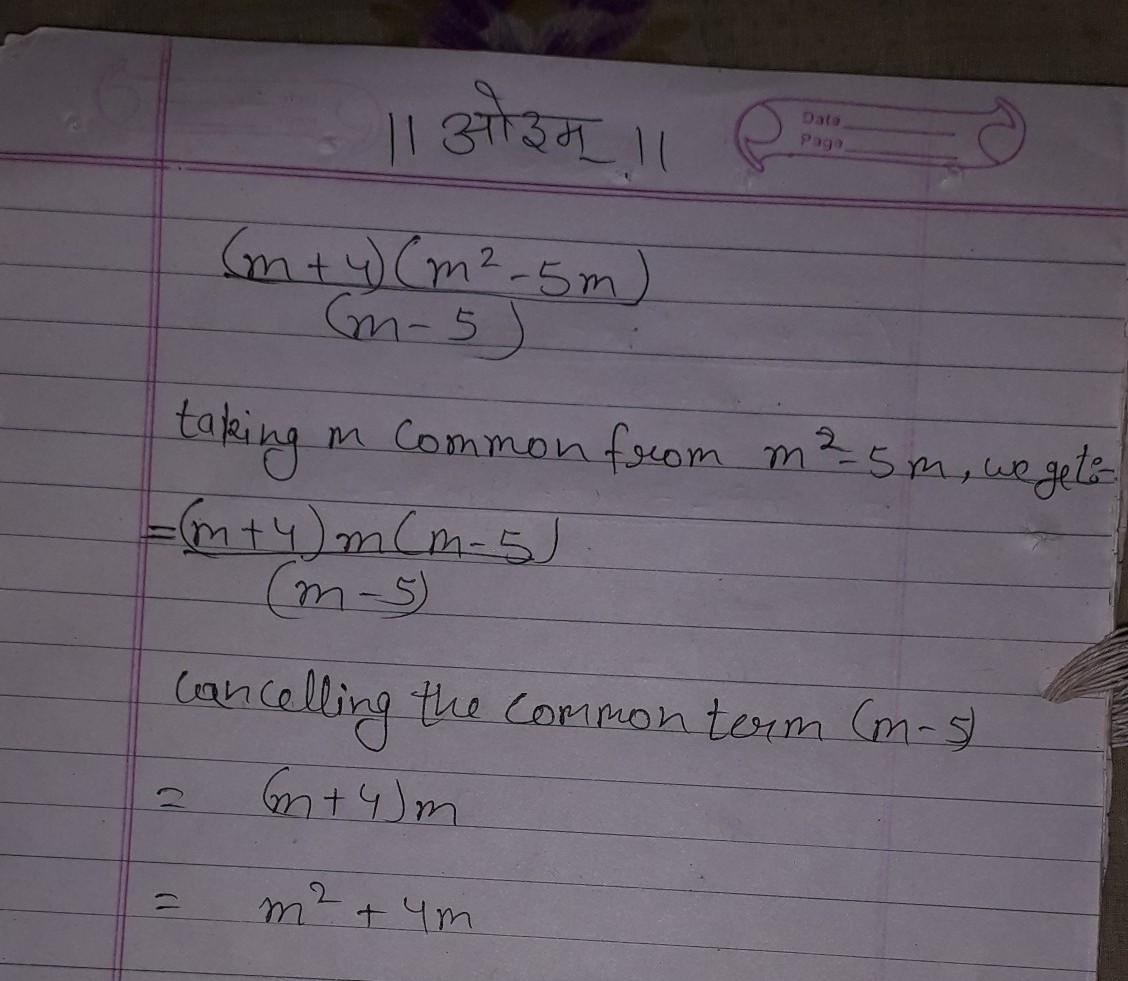 || ओ३म् ||
Date
Page
(m+4)(m²-5m)
(m-5)
taking m common from m²-5m, we get:-
=(m+4)m(m-5)
(m-5)
Cancelling the common term (m-5)
= (m+4)m
= m²+4m